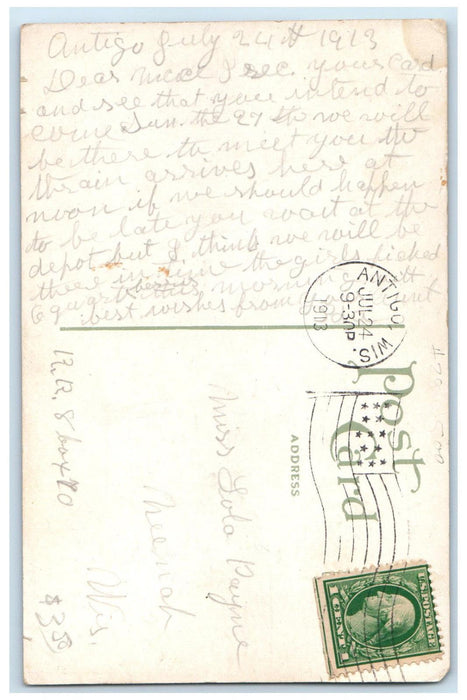 Antigo July 24th 1913
Dear I rec. your card
and see that you intend to
come Sun. the 27th we will
be there to meet you the
train arrives here at
noon if we should happen
to be late you wait at the
depot but I think we will be
there in time the girls picked
6 quarts morning with
best wishes from
ANTIGO, WIS.
JUL 24
9-30P
1913
Post
Card
ADDRESS
Miss Lola Payne
Neenah
Wis.
R.R. 8 box 70
$3.50
U.S. POSTAGE
1 CENT 1